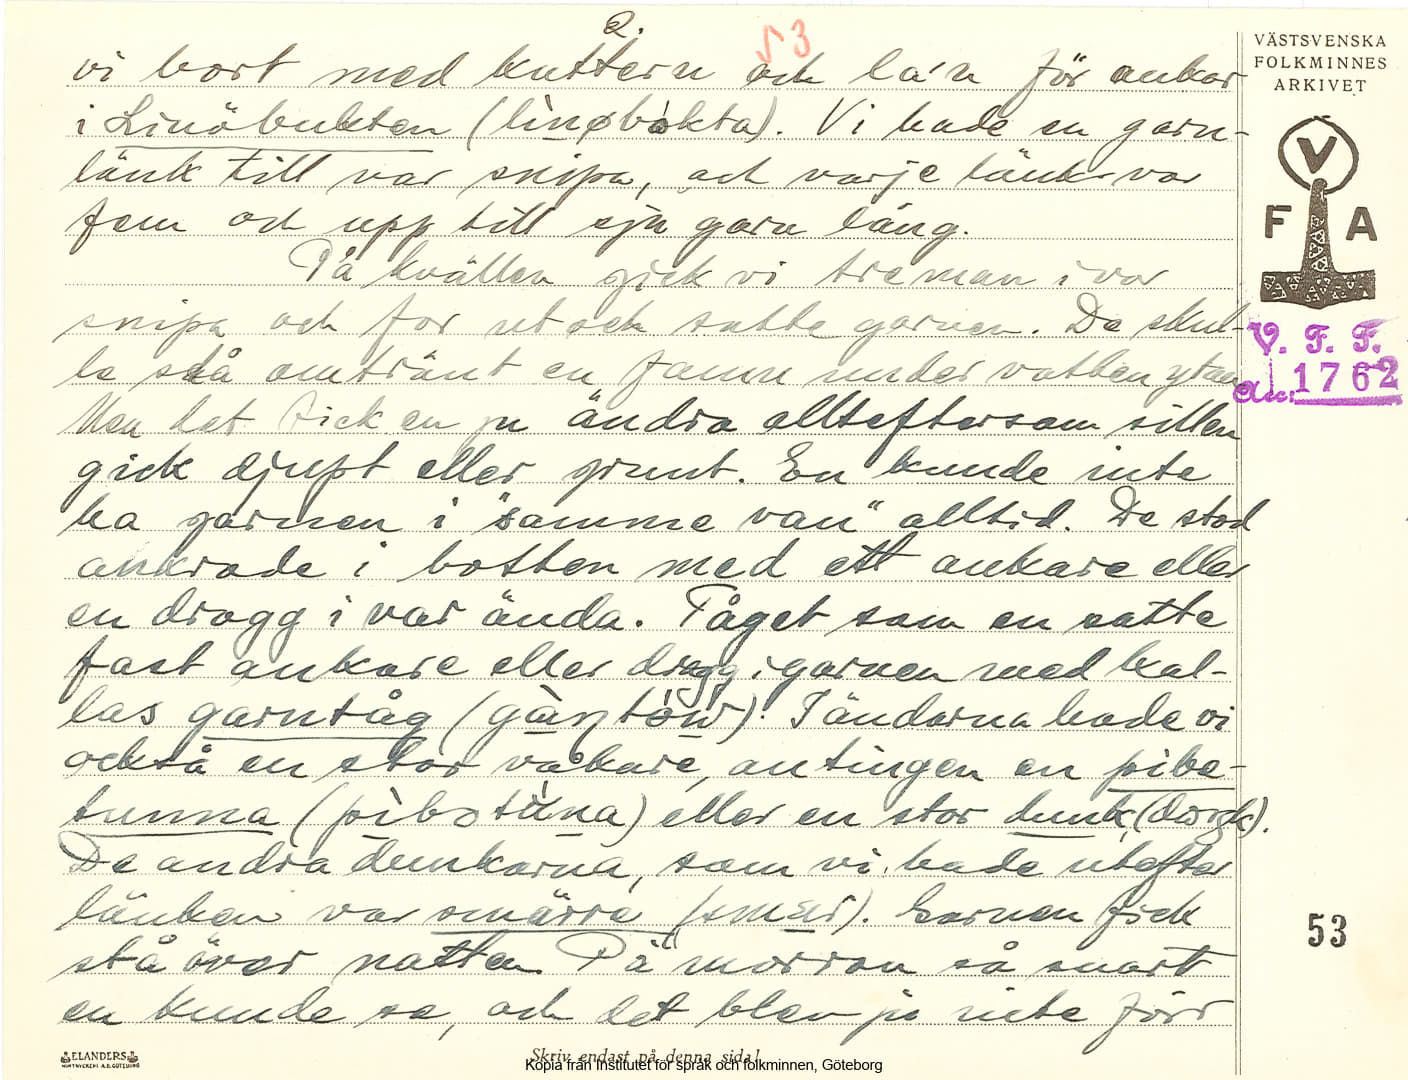 2.
53
vi bort med kuttern och la'n för ankar
i Linöbukten (lìnøbòkta). Vi hade en garn-
länk till var snipa, och varje länk var
fem och upp till sju garn lång.
På kvällen gick vi tre man i var
snipa och for ut och satte garnen. De skul-
le stå omtränt en famn under vattenytan
Men det fick en ju ändra allteftersom sillen
gick djupt eller grunt. En kunde inte
ha garnen i "samme van" alltid. De stod
ankrade i botten med ett ankare eller
en dragg i var ända. Tåget som en satte
fast ankare eller dragg i garnen med kal-
las garntåg. I ändarna hade vi
också en stor vakare, antingen en pibe-
tunna eller en stor dunk
De andra dunkarna, som vi hade utefter
länken var smärre. Garnen fick
stå över natten. På morron så snart
en kunde se, och det blev ju inte förr
VÄSTSVENSKA
FOLKMINNES
ARKIVET
V
F A
V. F. F.
Acc: 1762
53
ELANDERS
Skriv endast på denna sida!
Kopia från Institutet för språk och folkminnen, Göteborg